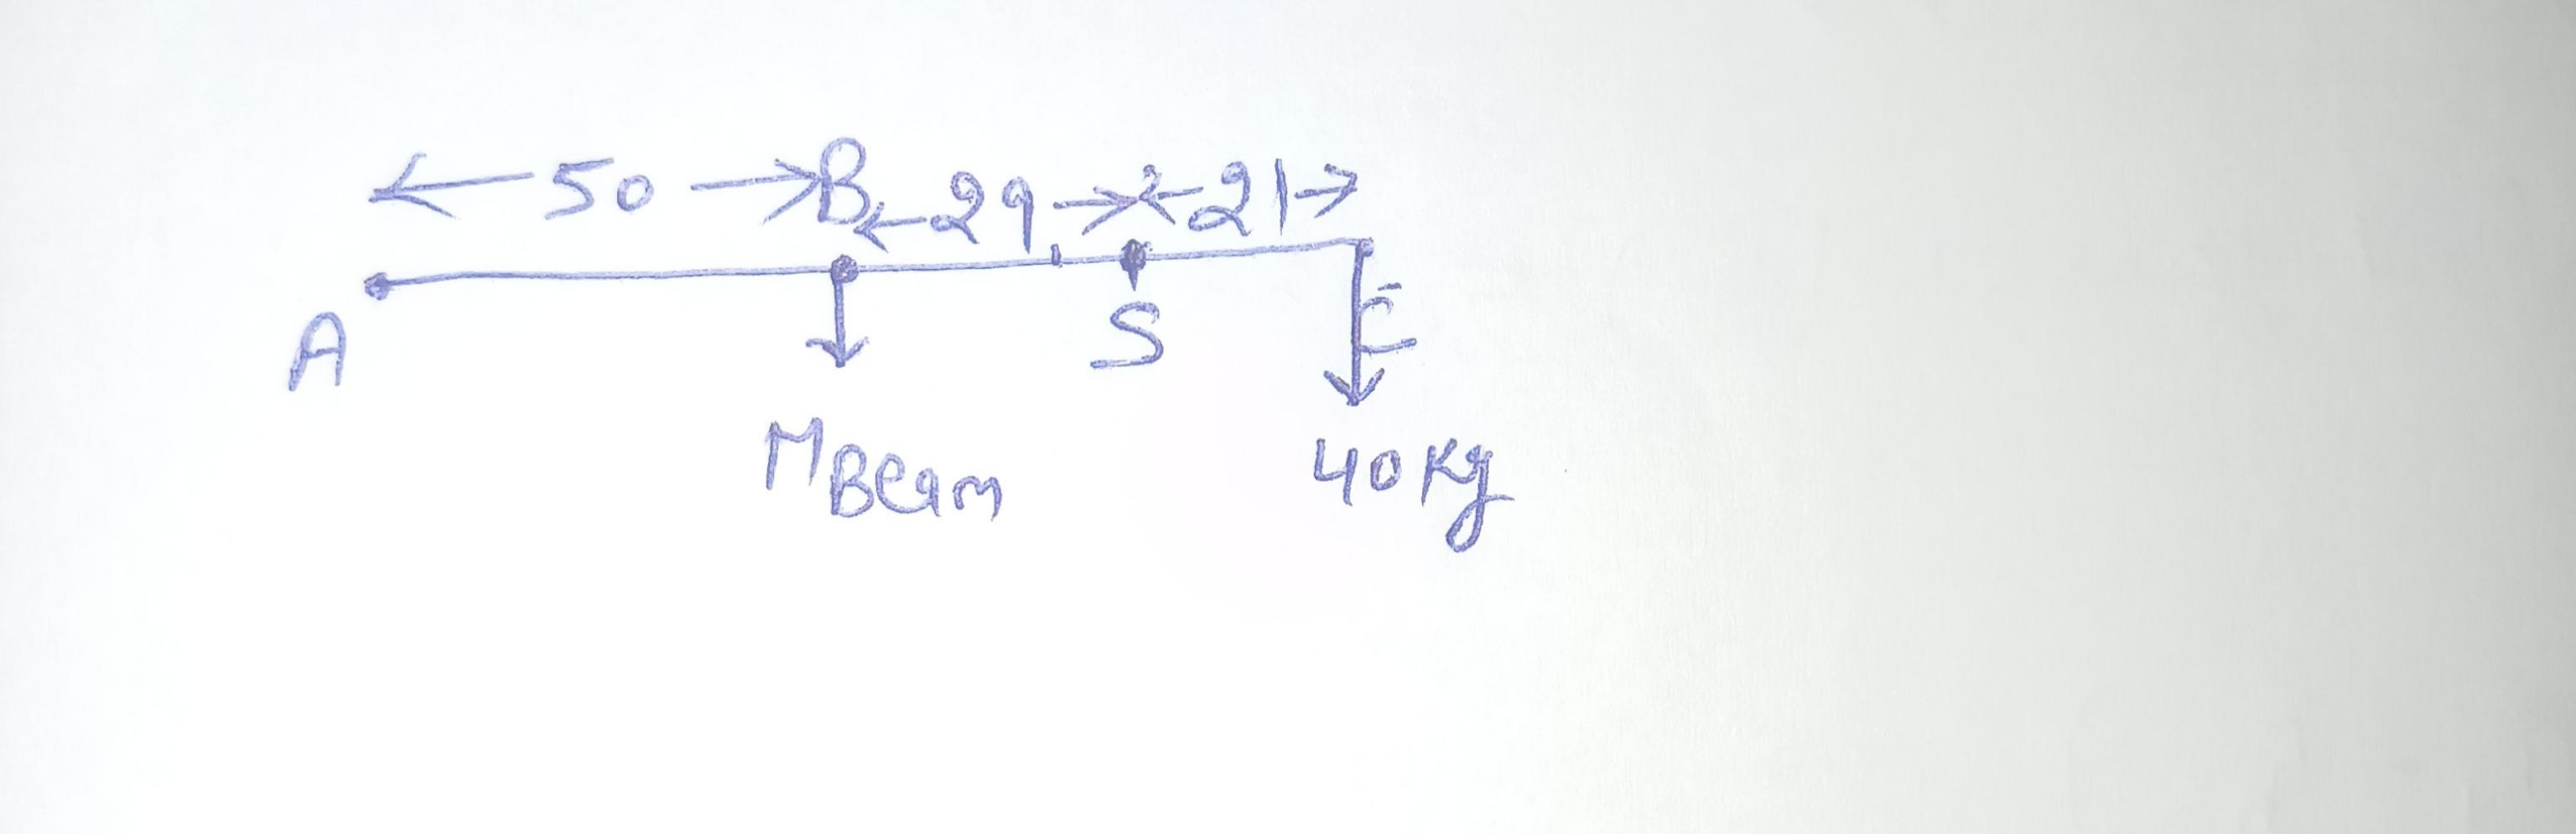 50 B 29 21
A S C
M Beam 40 Kg